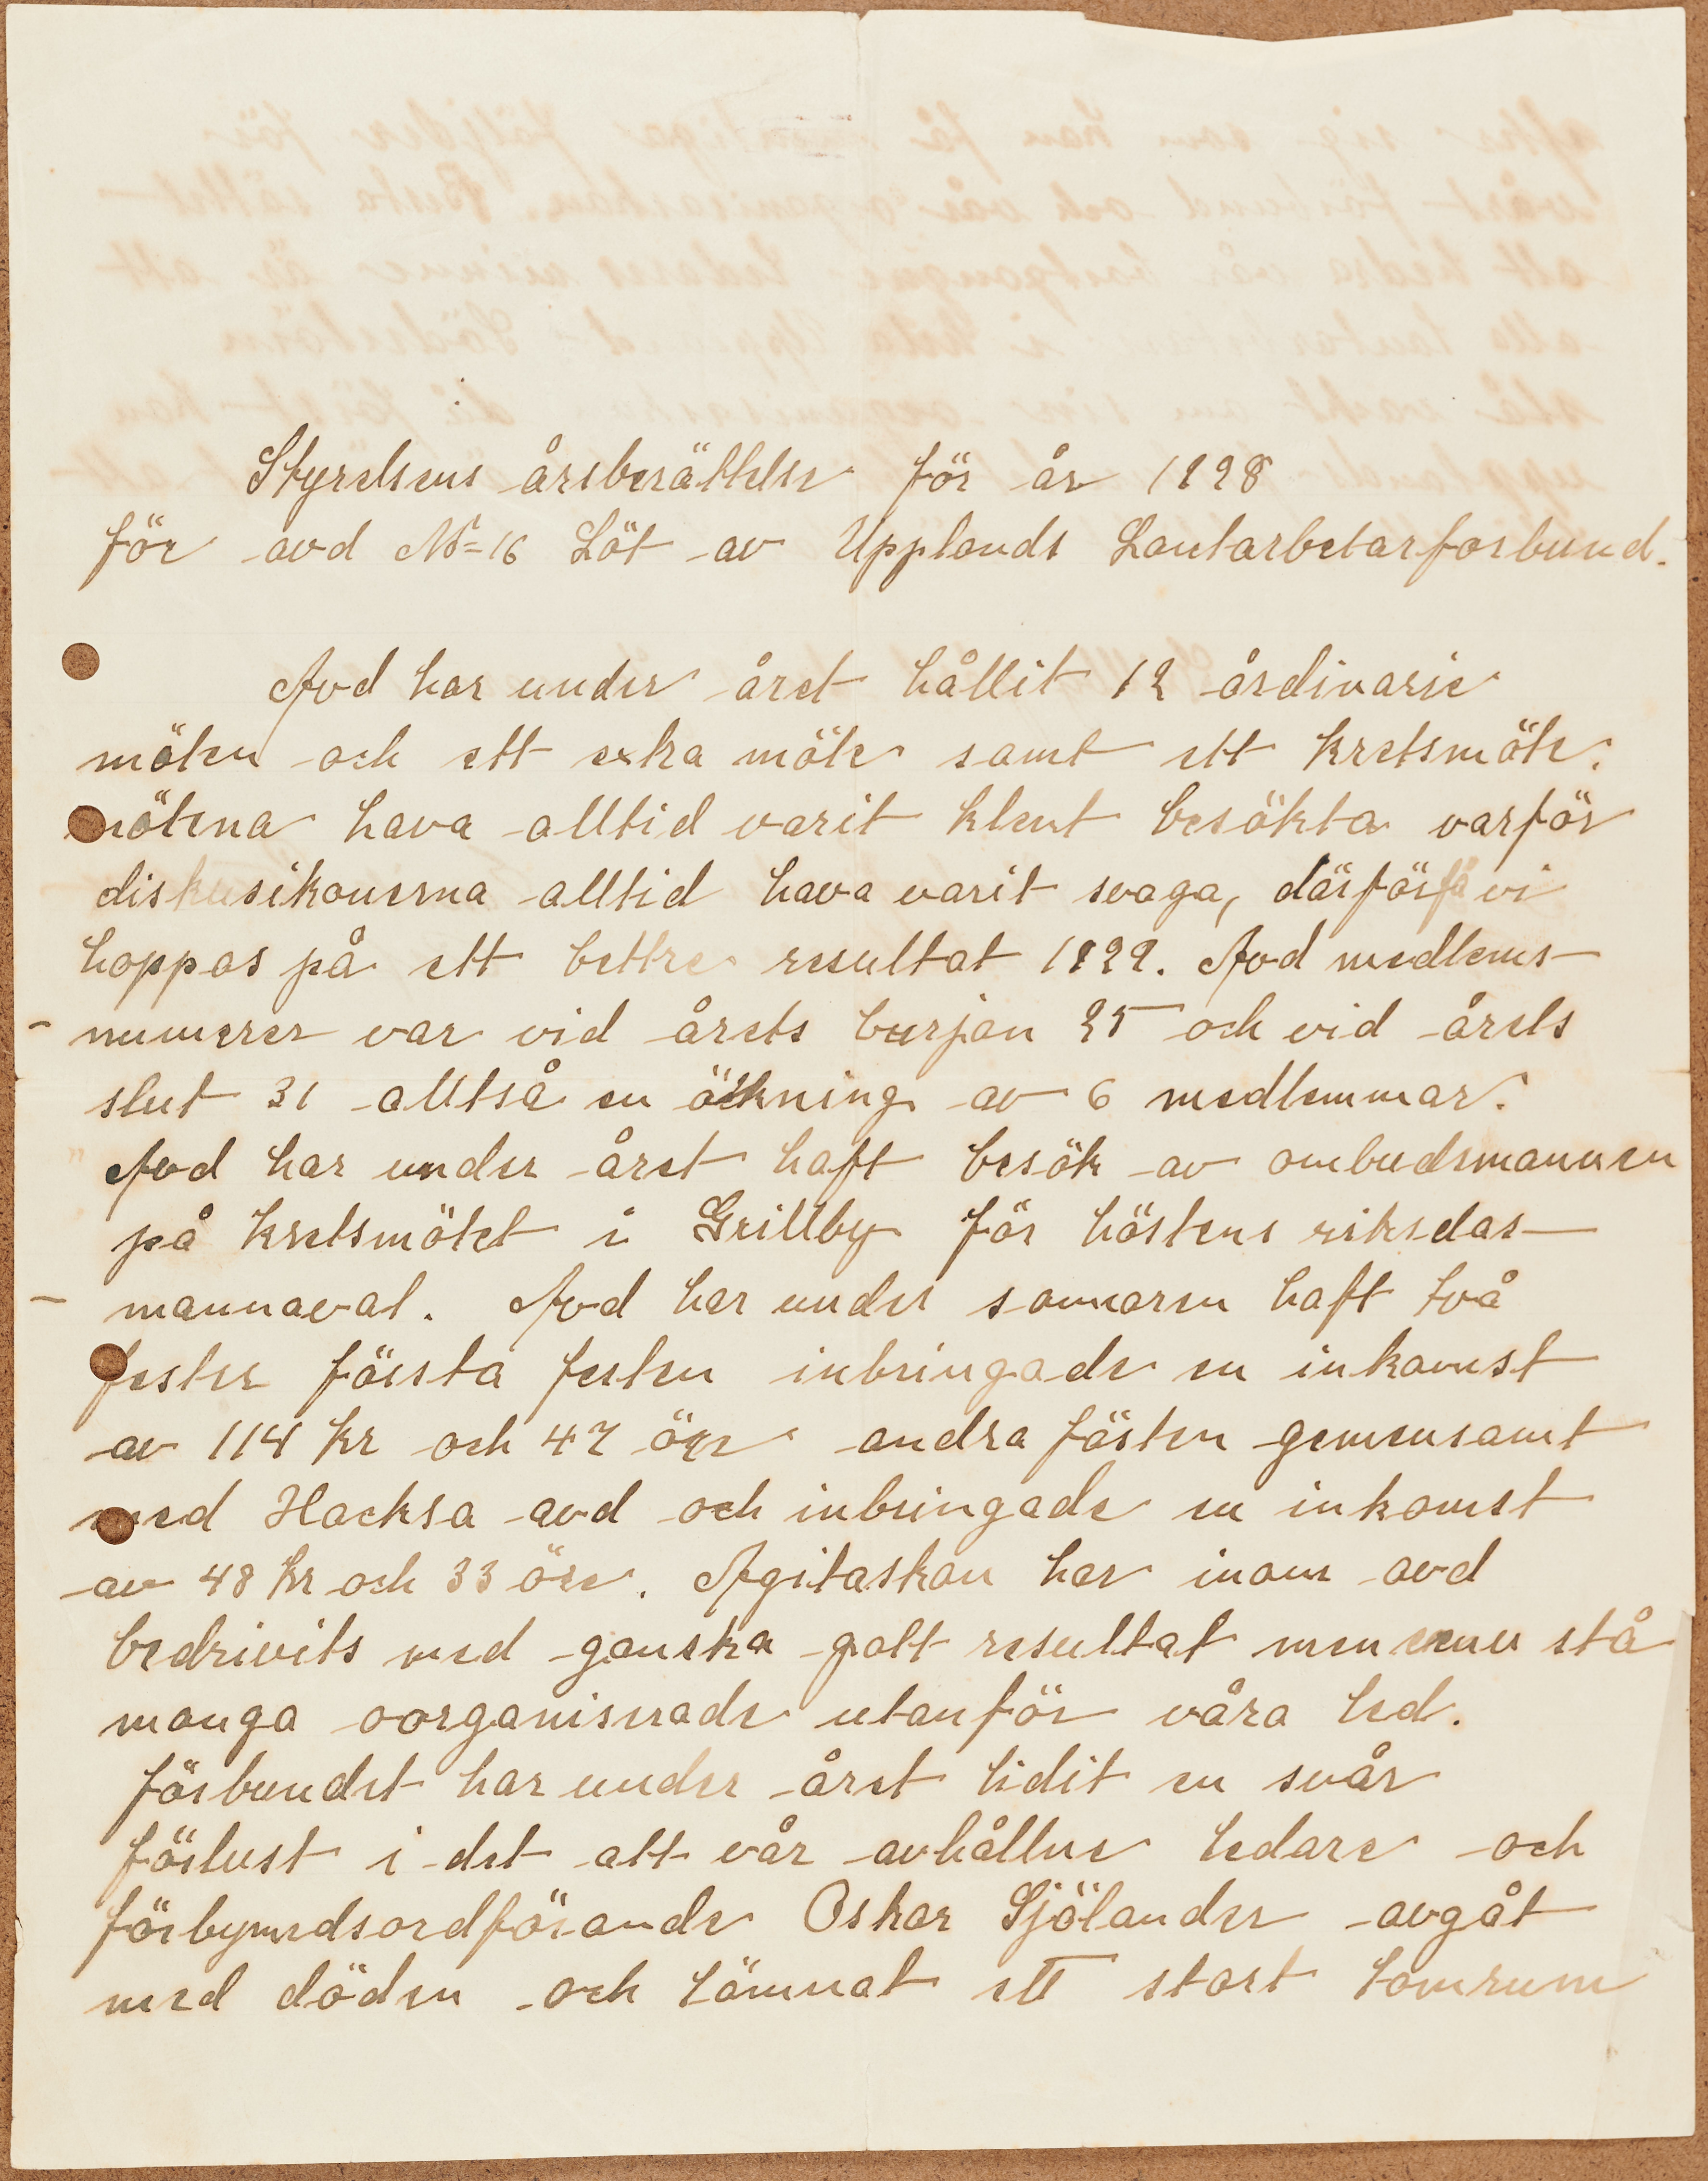 Styrelsens årsberättelse för år 1928
för avd No 16 Löt av Upplands Lantarbetarforbund.
Avd har under året hållit 12 årdinarie
möten och ett extra möte samt ett kretsmöte.
mötena hava alltid varit klent besökta varför
diskusikonerna alltid hava varit svaga, därför få vi
hoppas på ett bettre resultat 1929. Avd medlems-
- numerer var vid årets burjan 25 och vid årets
slut 31 alltså en ökning av 6 medlemmar.
Avd har under året haft besök av ombudsmannen
på kretsmötet i Grillby för höstens riksdas-
- mannaval. Avd har under somaren haft två
fester första festen inbringade en inkomst
av 114 kr och 47 öre andra fästen gemensamt
med Hacksa avd och inbringade en inkomst
av 48 kr och 33 öre. Agitaskon har inom avd
bedrivits med ganska gott resultat men ennu stå
monga oorganiserade utanför våra led.
förbundet har under året lidit en svår
förlust i det att vår avhållne ledare och
förbyndsordförande Oskar Sjölander avgåt
med döden och lämnat ett stort tomrum